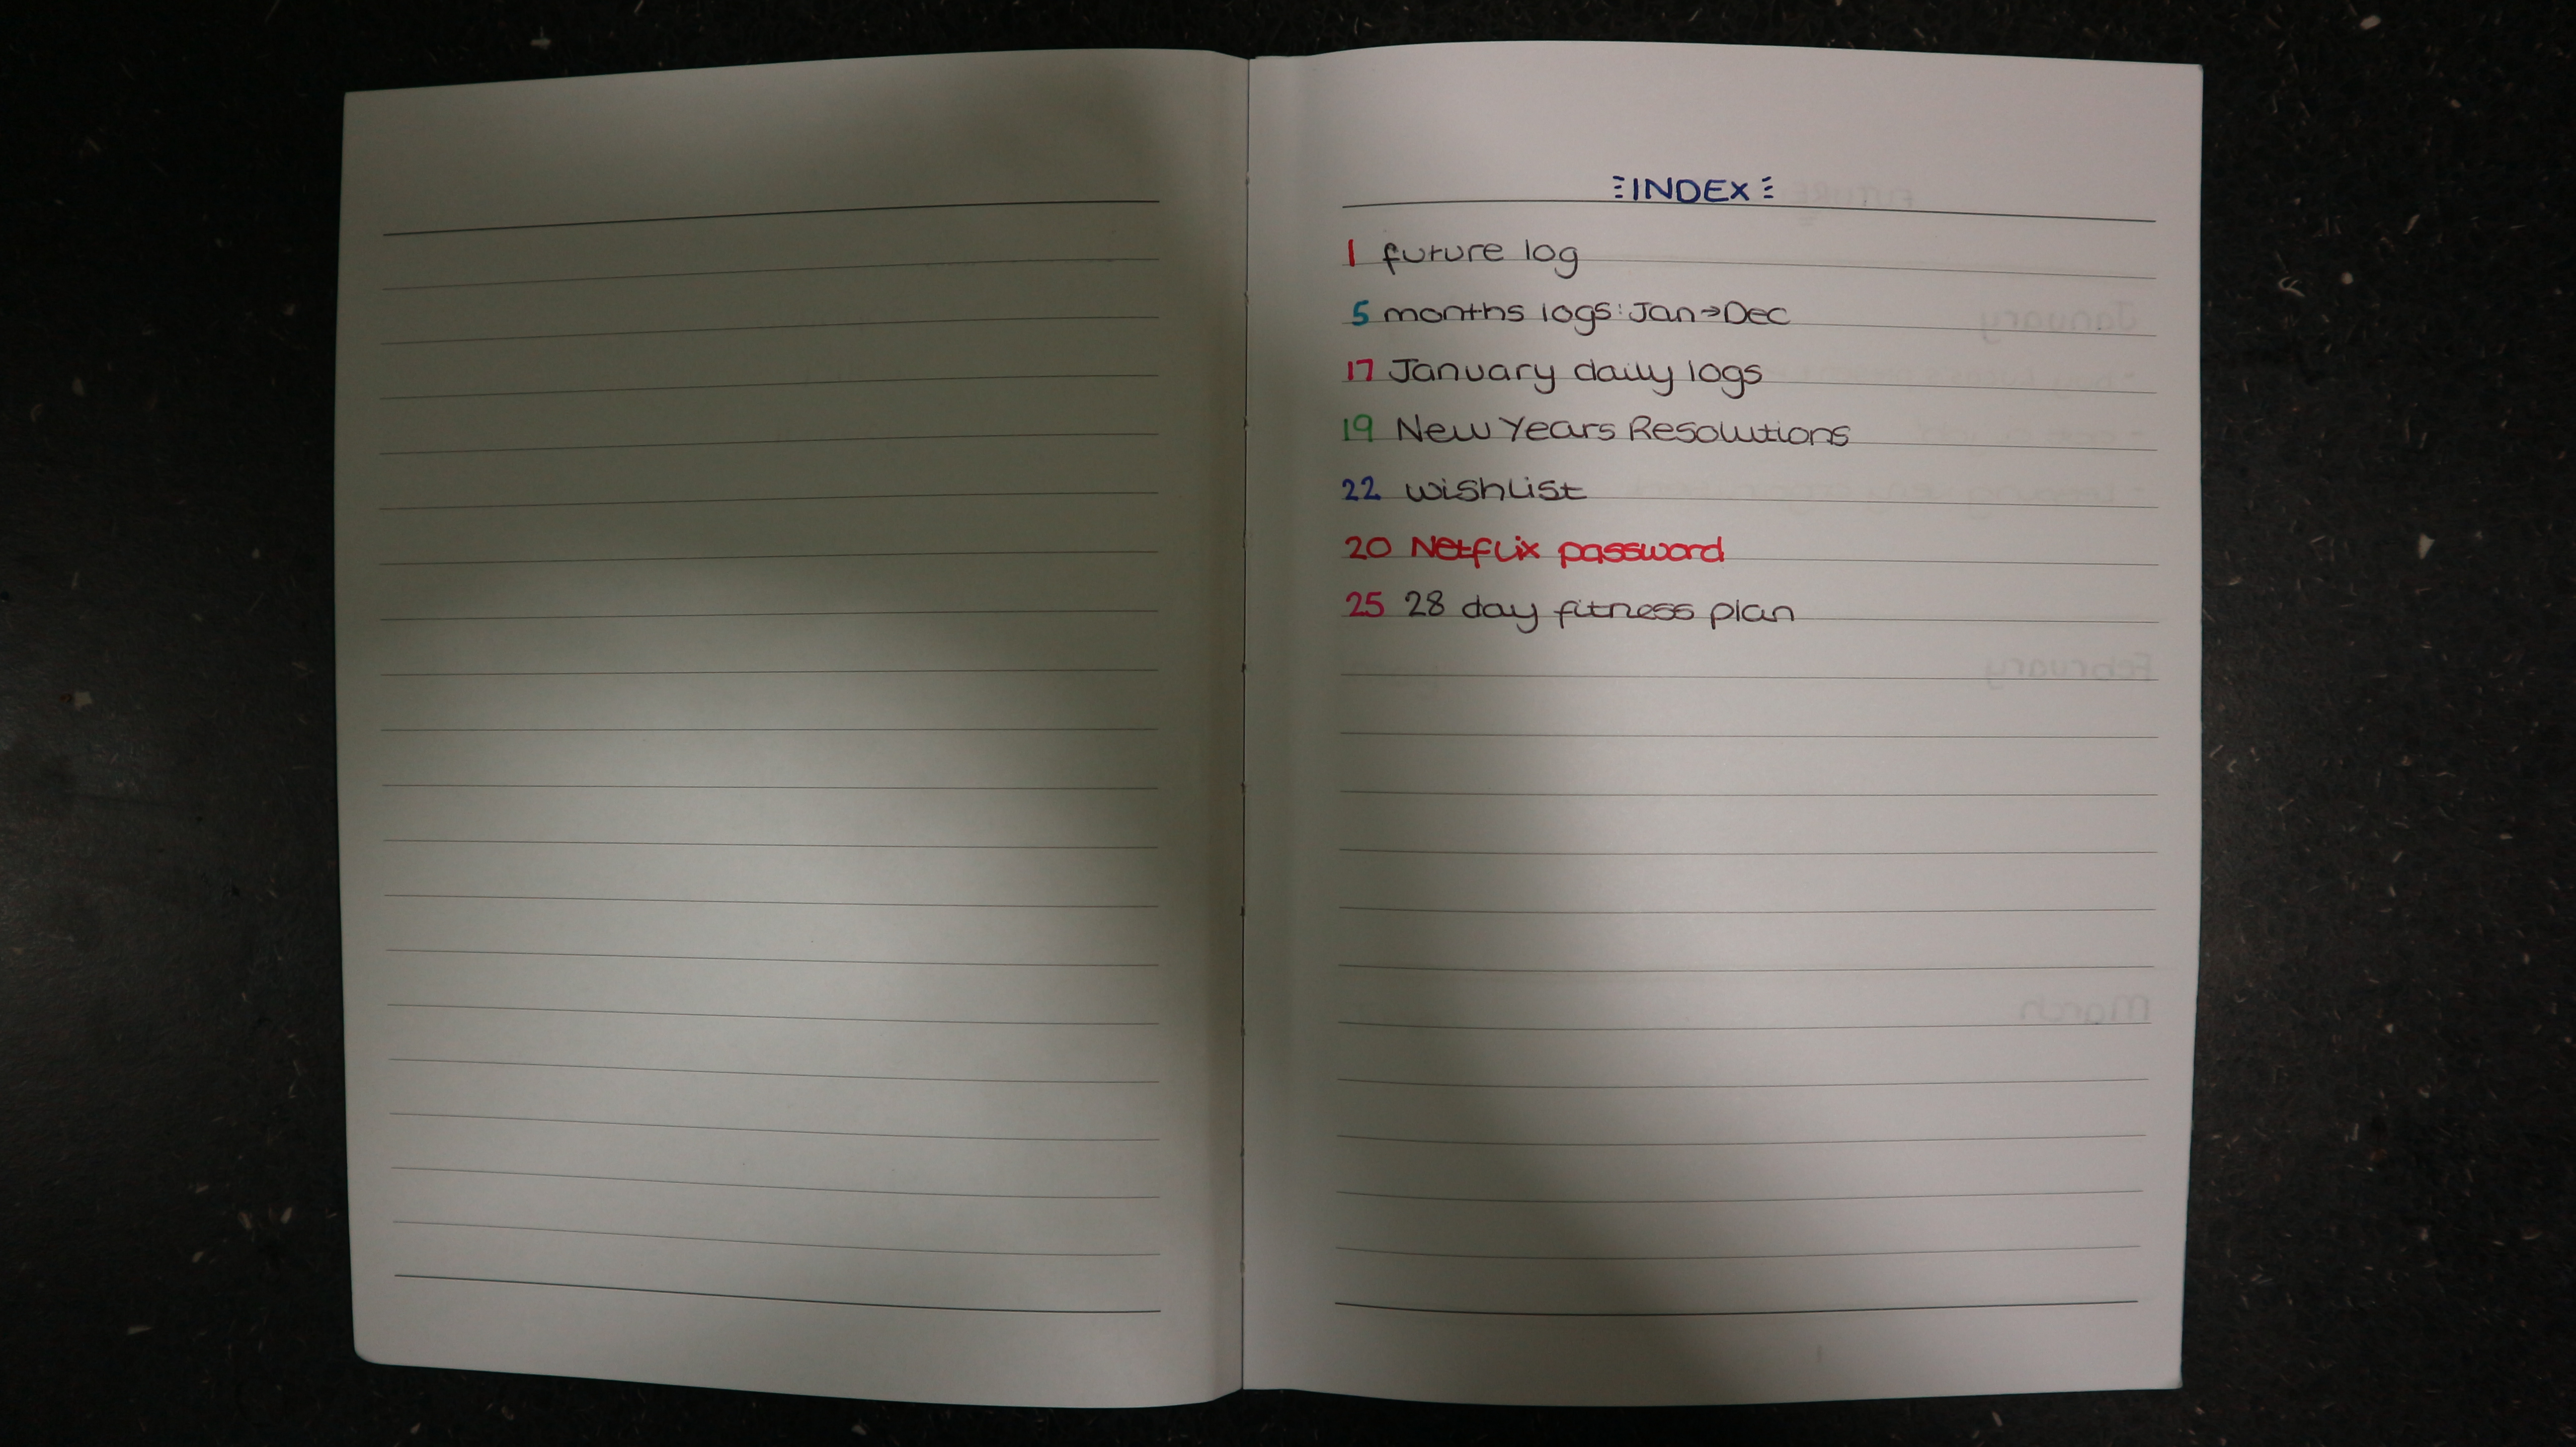 INDEX
1 future log
5 months logs: Jan→Dec
17 January daily logs
19 New Years Resolutions
22 wishlist
20 Netflix password
25 28 day fitness plan
January
February
March